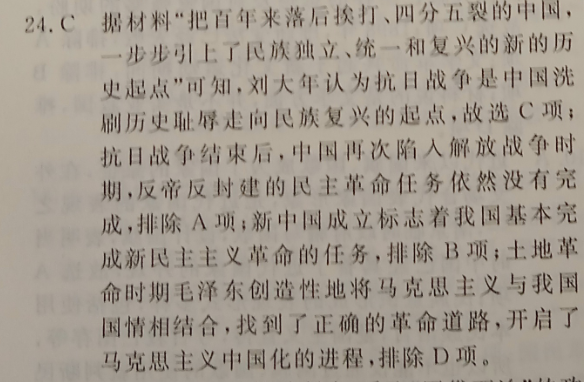 24. C 据材料“把百年来落后挨打、四分五裂的中国，
一步步引上了民族独立、统一和复兴的新的历
史起点”可知，刘大年认为抗日战争是中国洗
刷历史耻辱走向民族复兴的起点，故选 C 项；
抗日战争结束后，中国再次陷入解放战争时
期，反帝反封建的民主革命任务依然没有完
成，排除 A 项；新中国成立标志着我国基本完
成新民主主义革命的任务，排除 B 项；土地革
命时期毛泽东创造性地将马克思主义与我国
国情相结合，找到了正确的革命道路，开启了
马克思主义中国化的进程，排除 D 项。